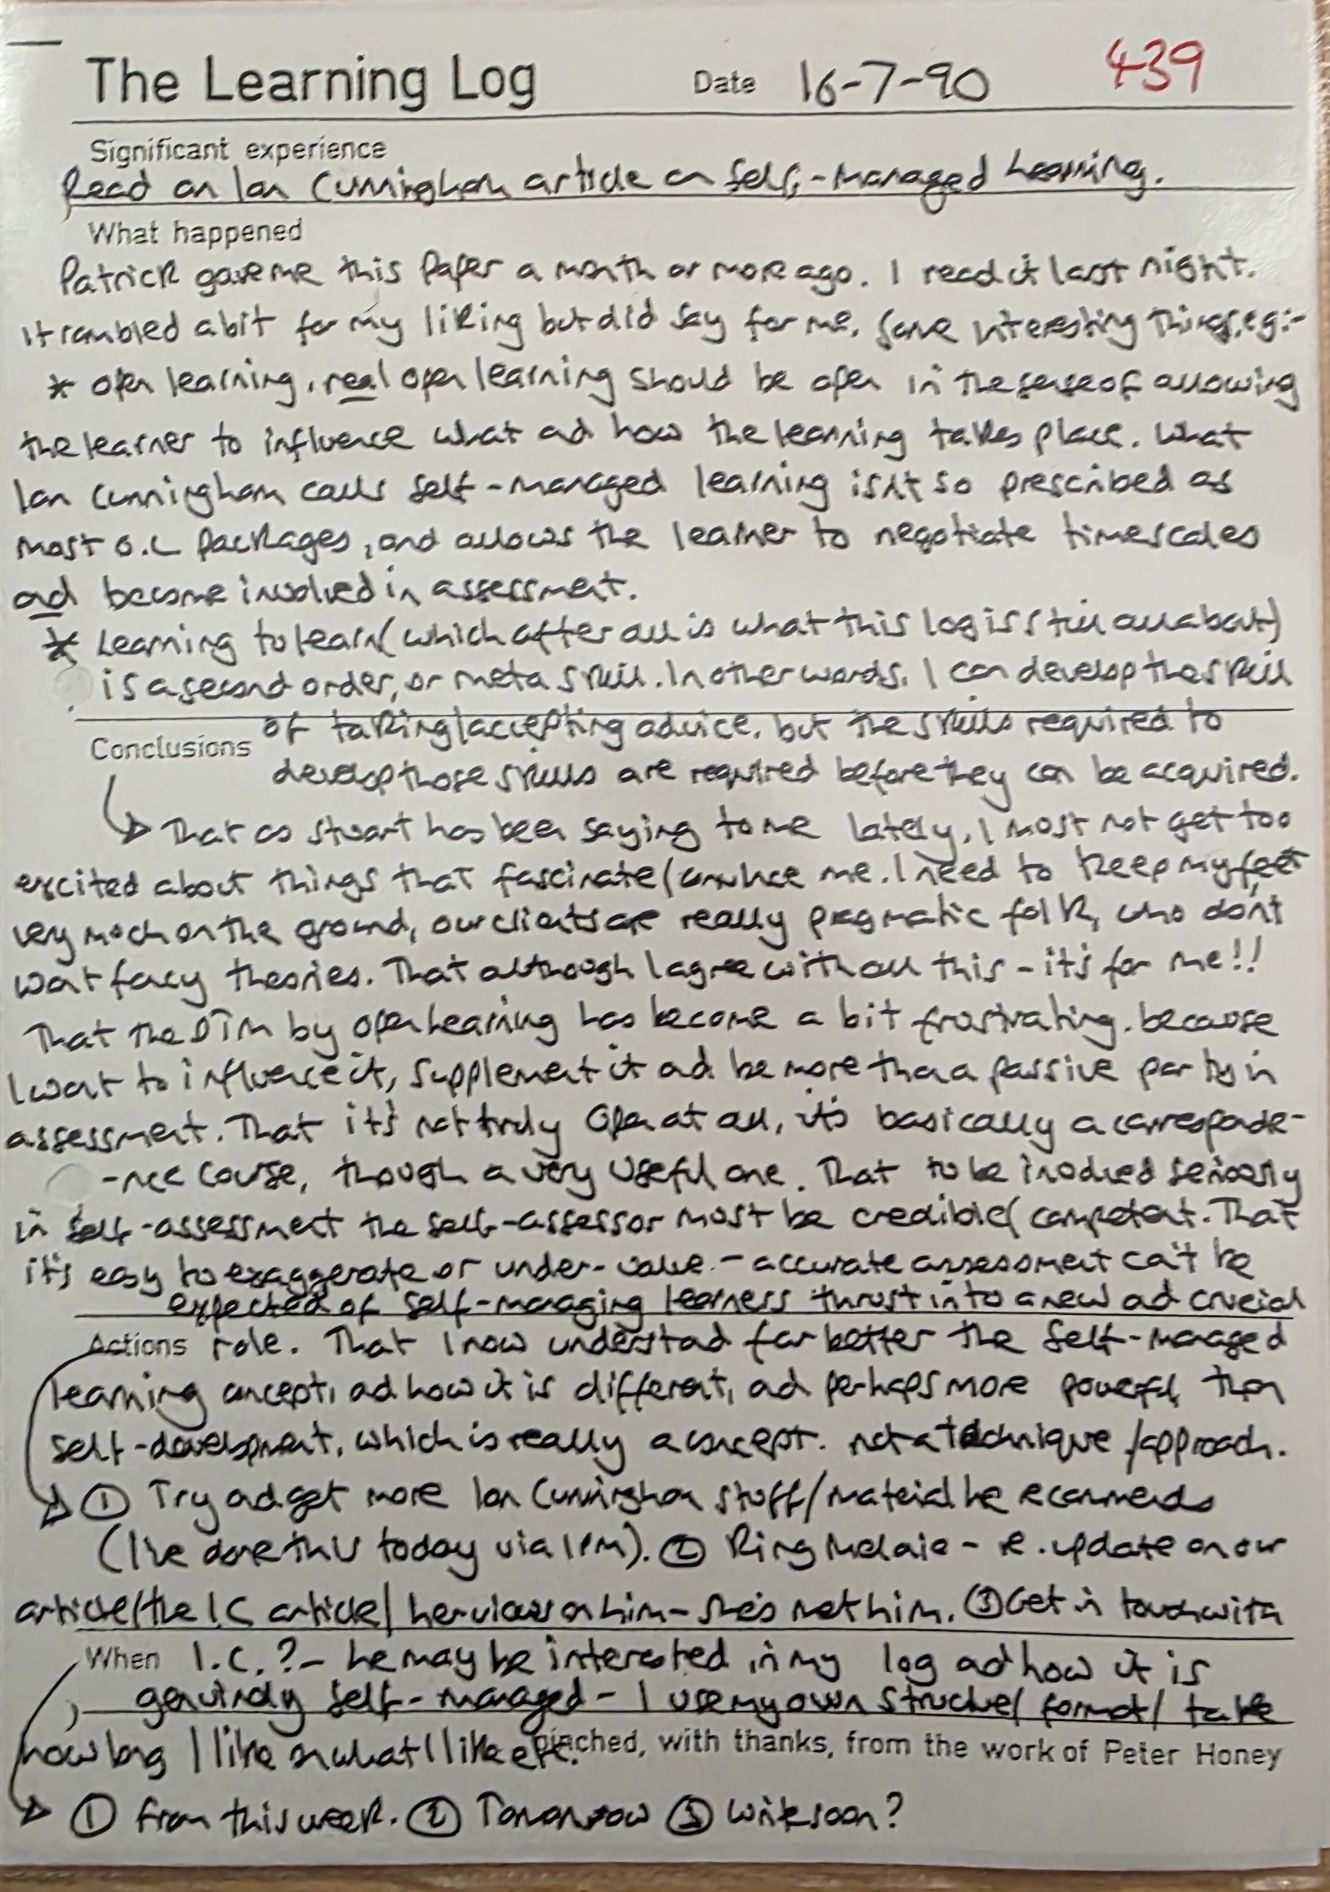 The Learning Log Date 16-7-90 439
Significant experience
Read an Ian Cunningham article on Self-Managed Learning.
What happened
Patrick gave me this paper a month or more ago. I read it last night.
It rambled a bit for my liking but did say for me, some interesting things, eg:-
* open learning, real open learning should be open in the sense of allowing
the learner to influence what and how the learning takes place. What
Ian Cunningham calls self-managed learning isn't so prescribed as
most O.L packages, and allows the learner to negotiate timescales
and become involved in assessment.
* Learning to learn (which after all is what this log is still all about)
is a second order, or meta skill. In other words, I can develop the skill
of taking/accepting advice, but the skills required to
Conclusions
develop those skills are required before they can be acquired.
That as Stuart has been saying to me lately, I must not get too
excited about things that fascinate/ me. I need to keep my feet
very much on the ground, our clients are really pragmatic folk, who don't
want fancy theories. That although I agree with all this - it's for me!!
That the DTM by open learning has become a bit frustrating, because
I want to influence it, supplement it and be more than a passive party in
assessment. That it's not truly open at all, it's basically a corresponde-
-nce course, though a very useful one. That to be involved seriously
in self-assessment the self-assessor must be credible/competent. That
it's easy to exaggerate or under-value - accurate assessment can't be
expected of self-managing learners thrust into a new and crucial
Actions role. That I now understand far better the self-managed
learning concept, and how it is different, and perhaps more powerful, than
self-development, which is really a concept, not a technique/approach.
① Try and get more Ian Cunningham stuff/material he recommends
(I've done this today via IPM). ② Ring Melanie - re. update on our
article/the I.C article/her views on him - she's met him. ③ Get in touch with
When I.C.? - he may be interested in my log and how it is
genuinely self-managed - I use my own structure/format/take
how long I like on what I like etc.
pinched, with thanks, from the work of Peter Honey
① From this week. ② Tomorrow ③ Write soon?